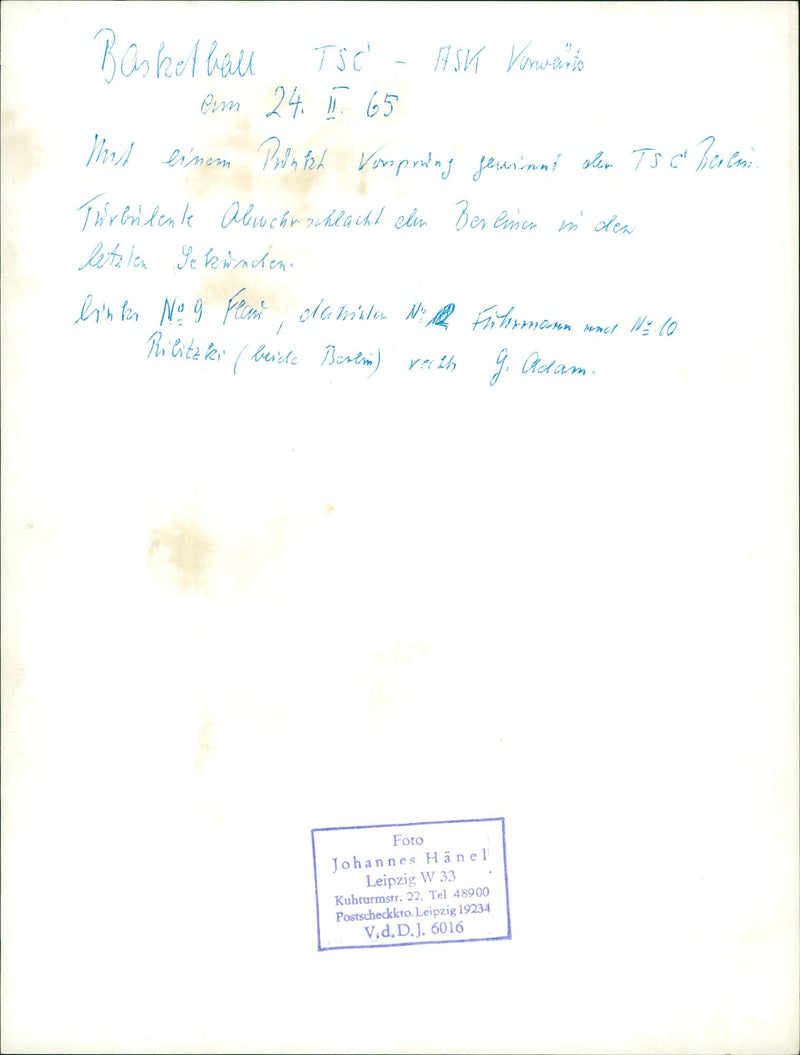 Basketball TSC - ASK Vorwärts
am 24. II. 65
Mit einem Punkt Vorsprung gewinnt der TSC Berlin.
Turbulente Abwehrschlacht der Berliner in den
letzten Sekunden.
links № 9, dahinter № 12 Fuhrmann und № 10
Ribitzki (beide Berlin) rechts G. Adam.
Foto
Johannes Hänel
Leipzig W 33
Kuhturmstr. 22, Tel 48900
Postscheckkto. Leipzig 19234
V.d.D.J. 6016